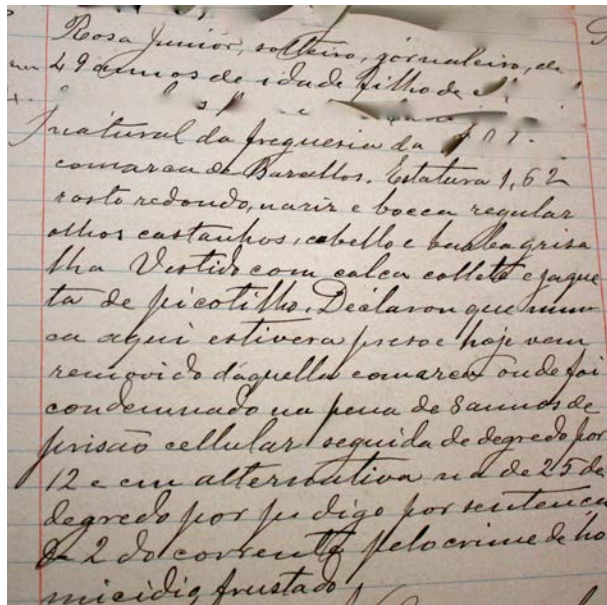 Rosa Junior, solteiro, jornaleiro, de
49 annos de idade filho de
natural da freguesia da
comarca de Barcellos. Estatura 1,62
rosto redondo, nariz e bocca regular
olhos castanhos, cabello e barba grisa
lha Vestido com calca collete e jaque
ta de picotilho. Declarou que nun
ca aqui estivera preso e hoje vem
removido d'aquella comarca onde foi
condemnado na pena de 8 annos de
prisão cellular seguida de degredo por
12 e em alternativa na de 25 de
degredo por pu digo por sentenca
de 2 do corrente pelo crime de ho
micidio frustado